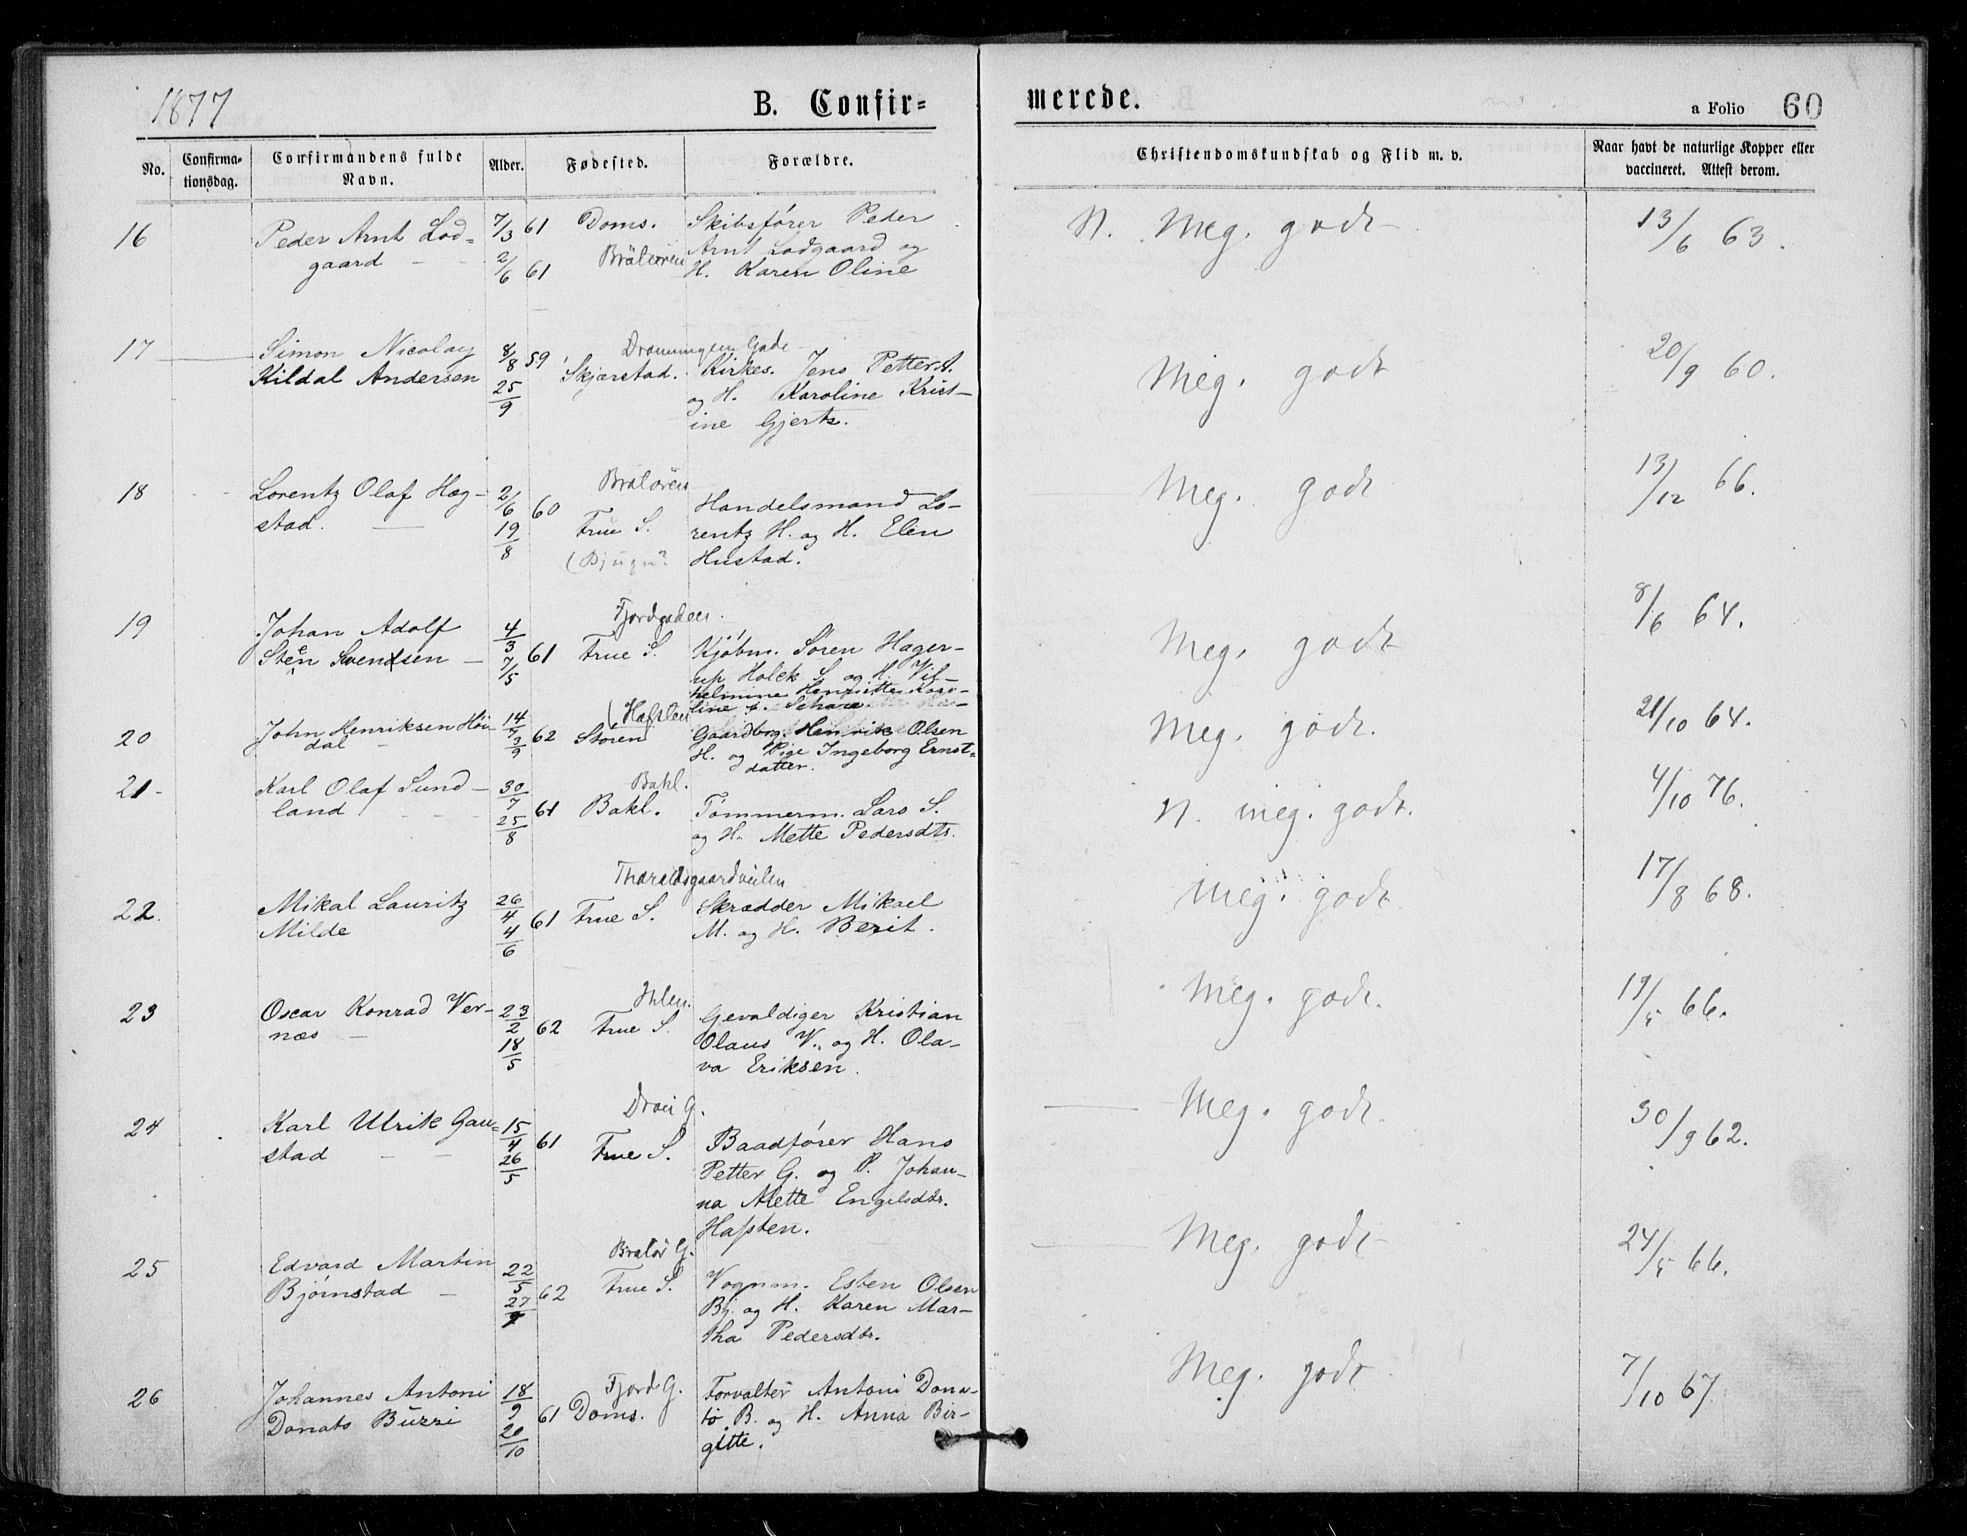 1877
B. Confir=
merede.
a Folio 60
No.
Confirma-
tionsdag.
Confirmandens fulde
Navn.
Alder.
Fødested.
Forældre.
Christendomskundskab og Flid m. v.
Naar havt de naturlige Kopper eller
vaccineret. Attest derom.
16
Peder Arnt Lod=
gaard
7/3 61
2/6 61
Doms.
Skibsfører Peder
Arnt Lodgaard og
H. Karen Oline
N. Meg. godt
13/6 63.
17
Simon Nicolay
Kildal Andersen
8/8 59
25/9
Dronningens Gade
Skjerstad.
Kirkes. Jens Petter A.
og H. Karoline Krist-
ine Gjertz.
Meg. godt
20/9 60.
18
Lorentz Olaf Hæg-
stad.
2/6 60
19/8
Frue S.
(Bjugn?
Handelsmand Lo-
rentz H. og H. Elen
Hustad.
Meg. godt
13/12 66.
19
Johan Adolf
Steen Svendsen
4/3 61
7/5
Fjordgaden.
Frue S.
Kjøbm. Søren Hager-
up Holck S. og H. Vil-
helmine Henriette Karo-
line
Meg. godt
8/6 64.
20
John Henriksen Høi
dal
14/7 62
3/9
(Hafsten
Støren
Gaardbrg. Henrik Olsen
H. og Pige Ingeborg Ernst-
datter.
Meg. godt.
21/10 64.
21
Karl Olaf Sund-
land
30/7 61
25/8
Bakl.
Bakl.
Tømmerm. Lars S.
og H. Mette Pedersdtr.
N. meg. godt.
4/10 76.
22.
Mikal Lauritz
Milde
26/4 61
4/6
Frue S.
Skrædder Mikael
M. og H. Berit.
Meg. godt
17/8 68.
23
Oscar Konrad Ver-
næs
23/2 62
18/5
Ihlen.
Frue S.
Gevaldiger Kristian
Olaus V. og H. Ola-
va Eriksen.
Meg. godt.
19/5 66.
24
Karl Ulrik Gau=
stad
15/4 61
26/5
Dron G.
Frue S.
Baadfører Hans
Petter G. og P. Johan-
na Mette Engelsdtr.
Hafsten.
Meg. godt.
30/9 62.
25
Edvard Martin
Bjørnstad
22/5 62
27/
Bratør G.
Frue S.
Vognm. Esten Olsen
Bj. og H. Karen Mar-
tha Pedersdtr.
Meg. godt
24/5 66.
26
Johannes Antoni
Donats Buzzi
18/9 61
20/10
Fjord G.
Doms.
Forvalter Antoni Dona-
to B. og H. Anna Bir-
gitte.
Meg. godt
7/10 67.